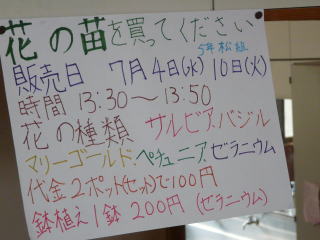 花の苗を買ってください
5年松組
販売日 7月4日(水) 10日(火)
時間 13:30~13:50
花の種類 サルビア.バジル
マリーゴールド.ペチュニア.ゼラニウム
代金2ポット(セット)で100円
鉢植え1鉢 200円 (ゼラニウム)